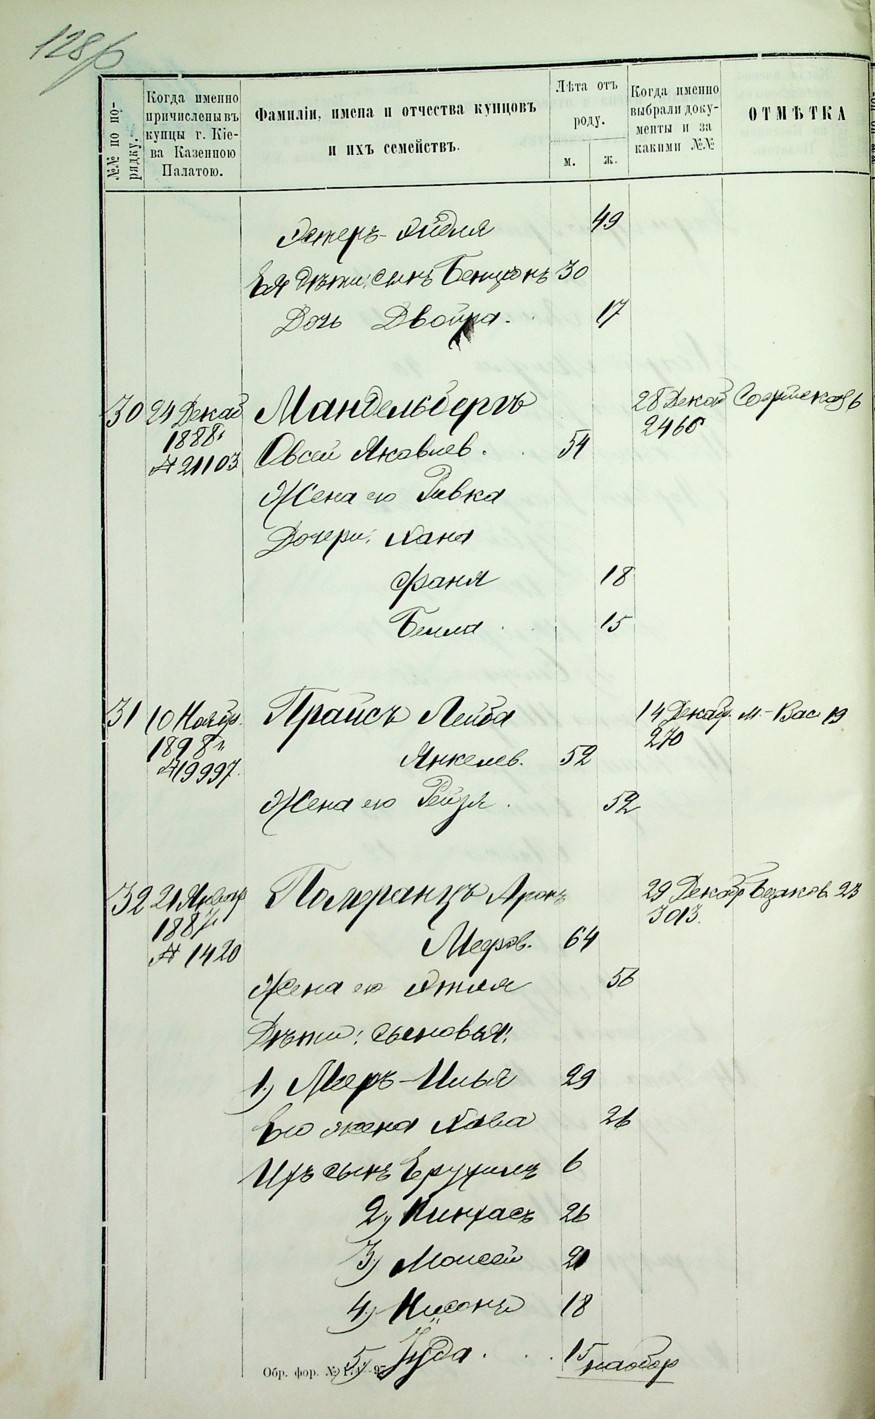 128/р
№№ по по-
рядку.
Когда именно
причислены въ
купцы г. Кіе-
ва Казенною
Палатою.
Фамиліи, имена и отчества купцовъ
и ихъ семействъ.
Лѣта отъ
роду.
м.
ж.
Когда именно
выбрали доку-
менты и за
какими №№
ОТМѢТКА
Эстеръ-Эйдля 49
Ея дѣти: сынъ Бенціонъ 30
Дочь Двойра. 17
30 24 Декаб Мандельбергъ 28 Декаб
1888 г. 2466
№ 21103 Овсей Яковлев. 54
Жена его Ривка
Дочери: Хана
Фаня 18
Белла 15
31 10 Ноябр. Прайсъ Лейба 14 Декаб. М-Вас. 19
1898 г. 270
№ 19997. Янкелев. 52
Жена его Рейзя. 52
32 21 Январ Померанцъ Аронъ 29 Декабр Безаков. 23
1887 г. 3013.
№ 1420 Мееров. 64
Жена его Этля 56
Дѣти: сыновья:
1.) Меръ-Илья 29
Его жена Хава 26
Ихъ сынъ Ерухимъ 6
2) Пинхасъ 26
3) Моисей 21
4.) Нисонъ 18
5) Іуда. 15
Обр. фор. №